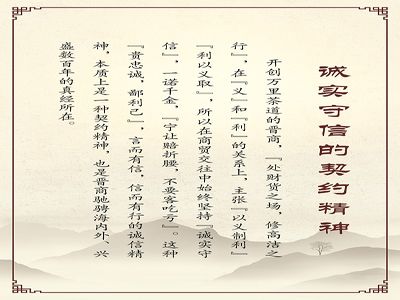 诚实守信的契约精神
开创万里茶道的晋商，『处财货之场，修高洁之
行』，在『义』和『利』的关系上，主张『以义制利』
『利以义取』，所以在商贸交往中始终坚持『诚实守
信』，一诺千金，『宁让赔折腰，不要客吃亏』。这种
『贵忠诚，鄙利己』，言而有信，信而有行的诚信精
神，本质上是一种契约精神，也是晋商驰骋海内外、兴
盛数百年的真经所在。